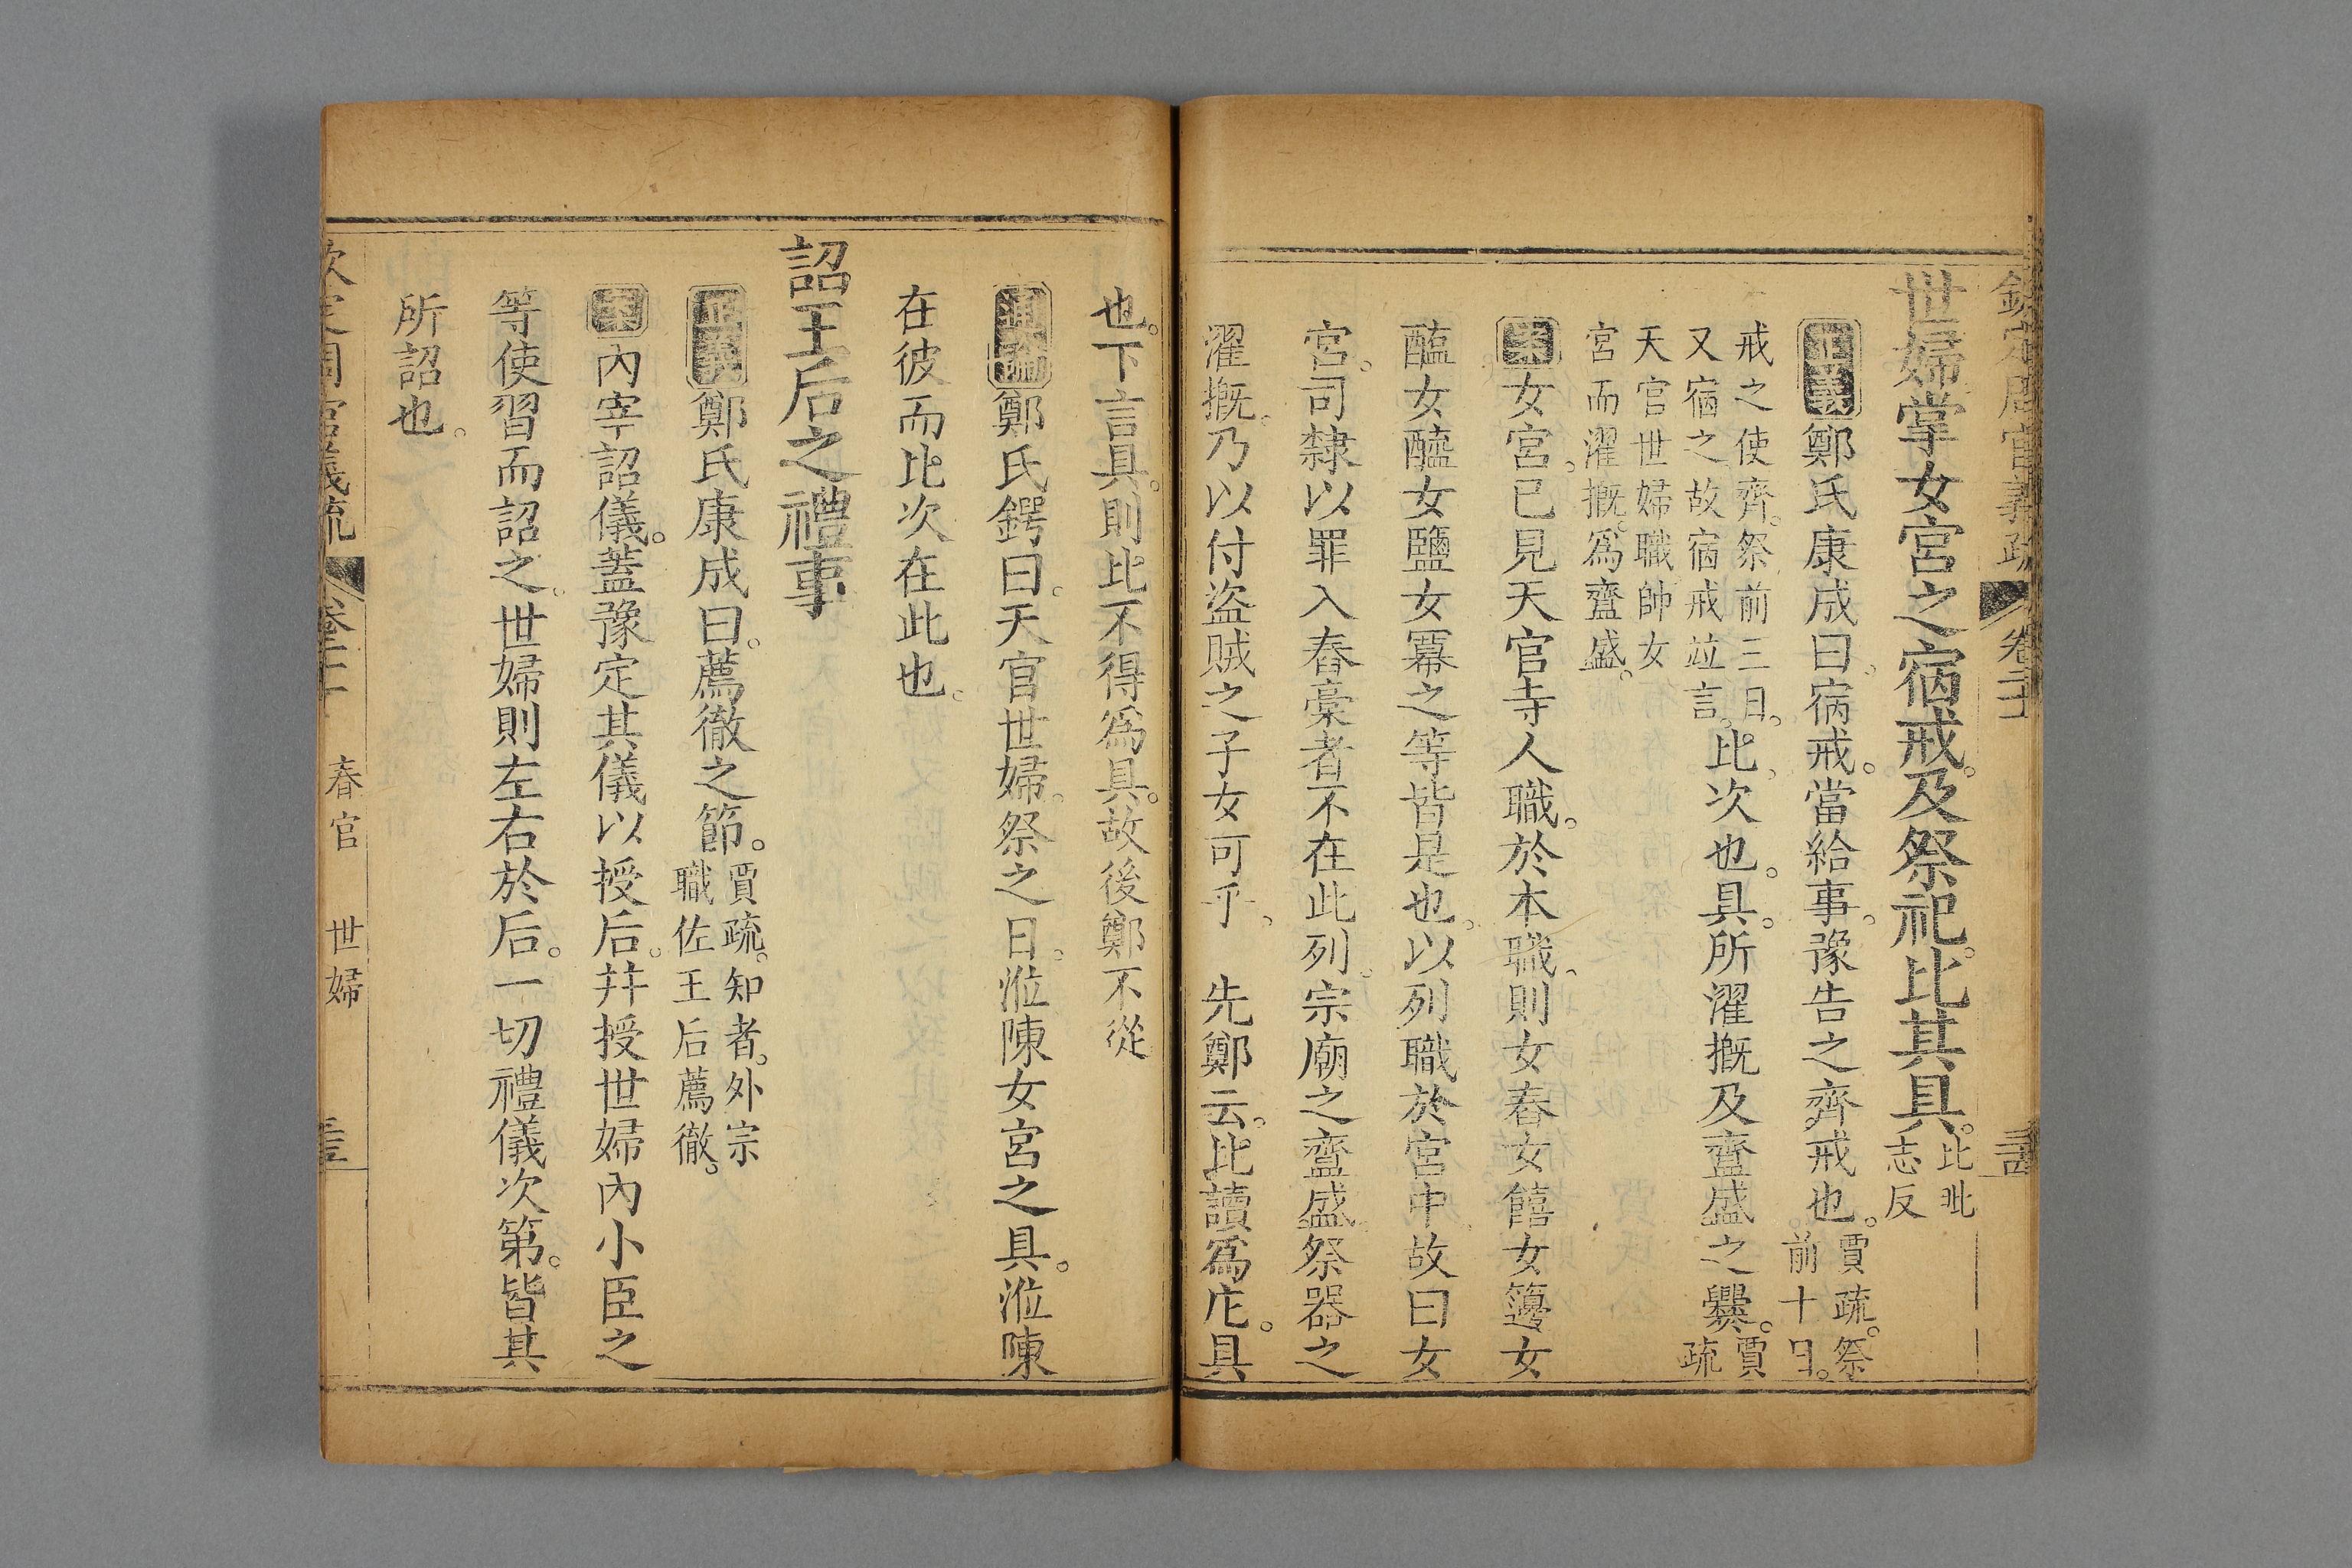 欽定周官義疏 卷二十 三十四
世婦掌女宮之宿戒。及祭祀。比其具。比毗志反
正義鄭氏康成曰。宿戒。當給事。豫告之齊。戒也。賈疏。祭前十日。
戒之使齊。祭前三日。又宿之。故宿戒竝言。比。次也。具。所濯摡及齍盛之爨。賈疏
天官世婦職帥女宮而濯摡。爲齍盛。
案女宮。已見天官寺人職。於本職。則女舂女饎女籩女
醢女醯女鹽女冪之等皆是也。以列職於宮中。故曰女
宮。司隸以罪入舂稾者不在此列。宗廟之齍盛。祭器之
濯摡。乃以付盜賊之子女可乎。 先鄭云。比讀爲庀。具
也。下言具。則比不得爲具。故後鄭不從
通論鄭氏鍔曰。天官世婦。祭之日。涖陳女宮之具。涖陳
在彼而比次在此也。
詔王后之禮事
正義鄭氏康成曰。薦徹之節。賈疏。知者。外宗職佐王后薦徹。
案內宰詔儀。蓋豫定其儀以授后。幷授世婦內小臣之
等使習而詔之。世婦則左右於后。一切禮儀次第。皆其
所詔也。
欽定周官義疏 卷二十 春官 世婦 三十五